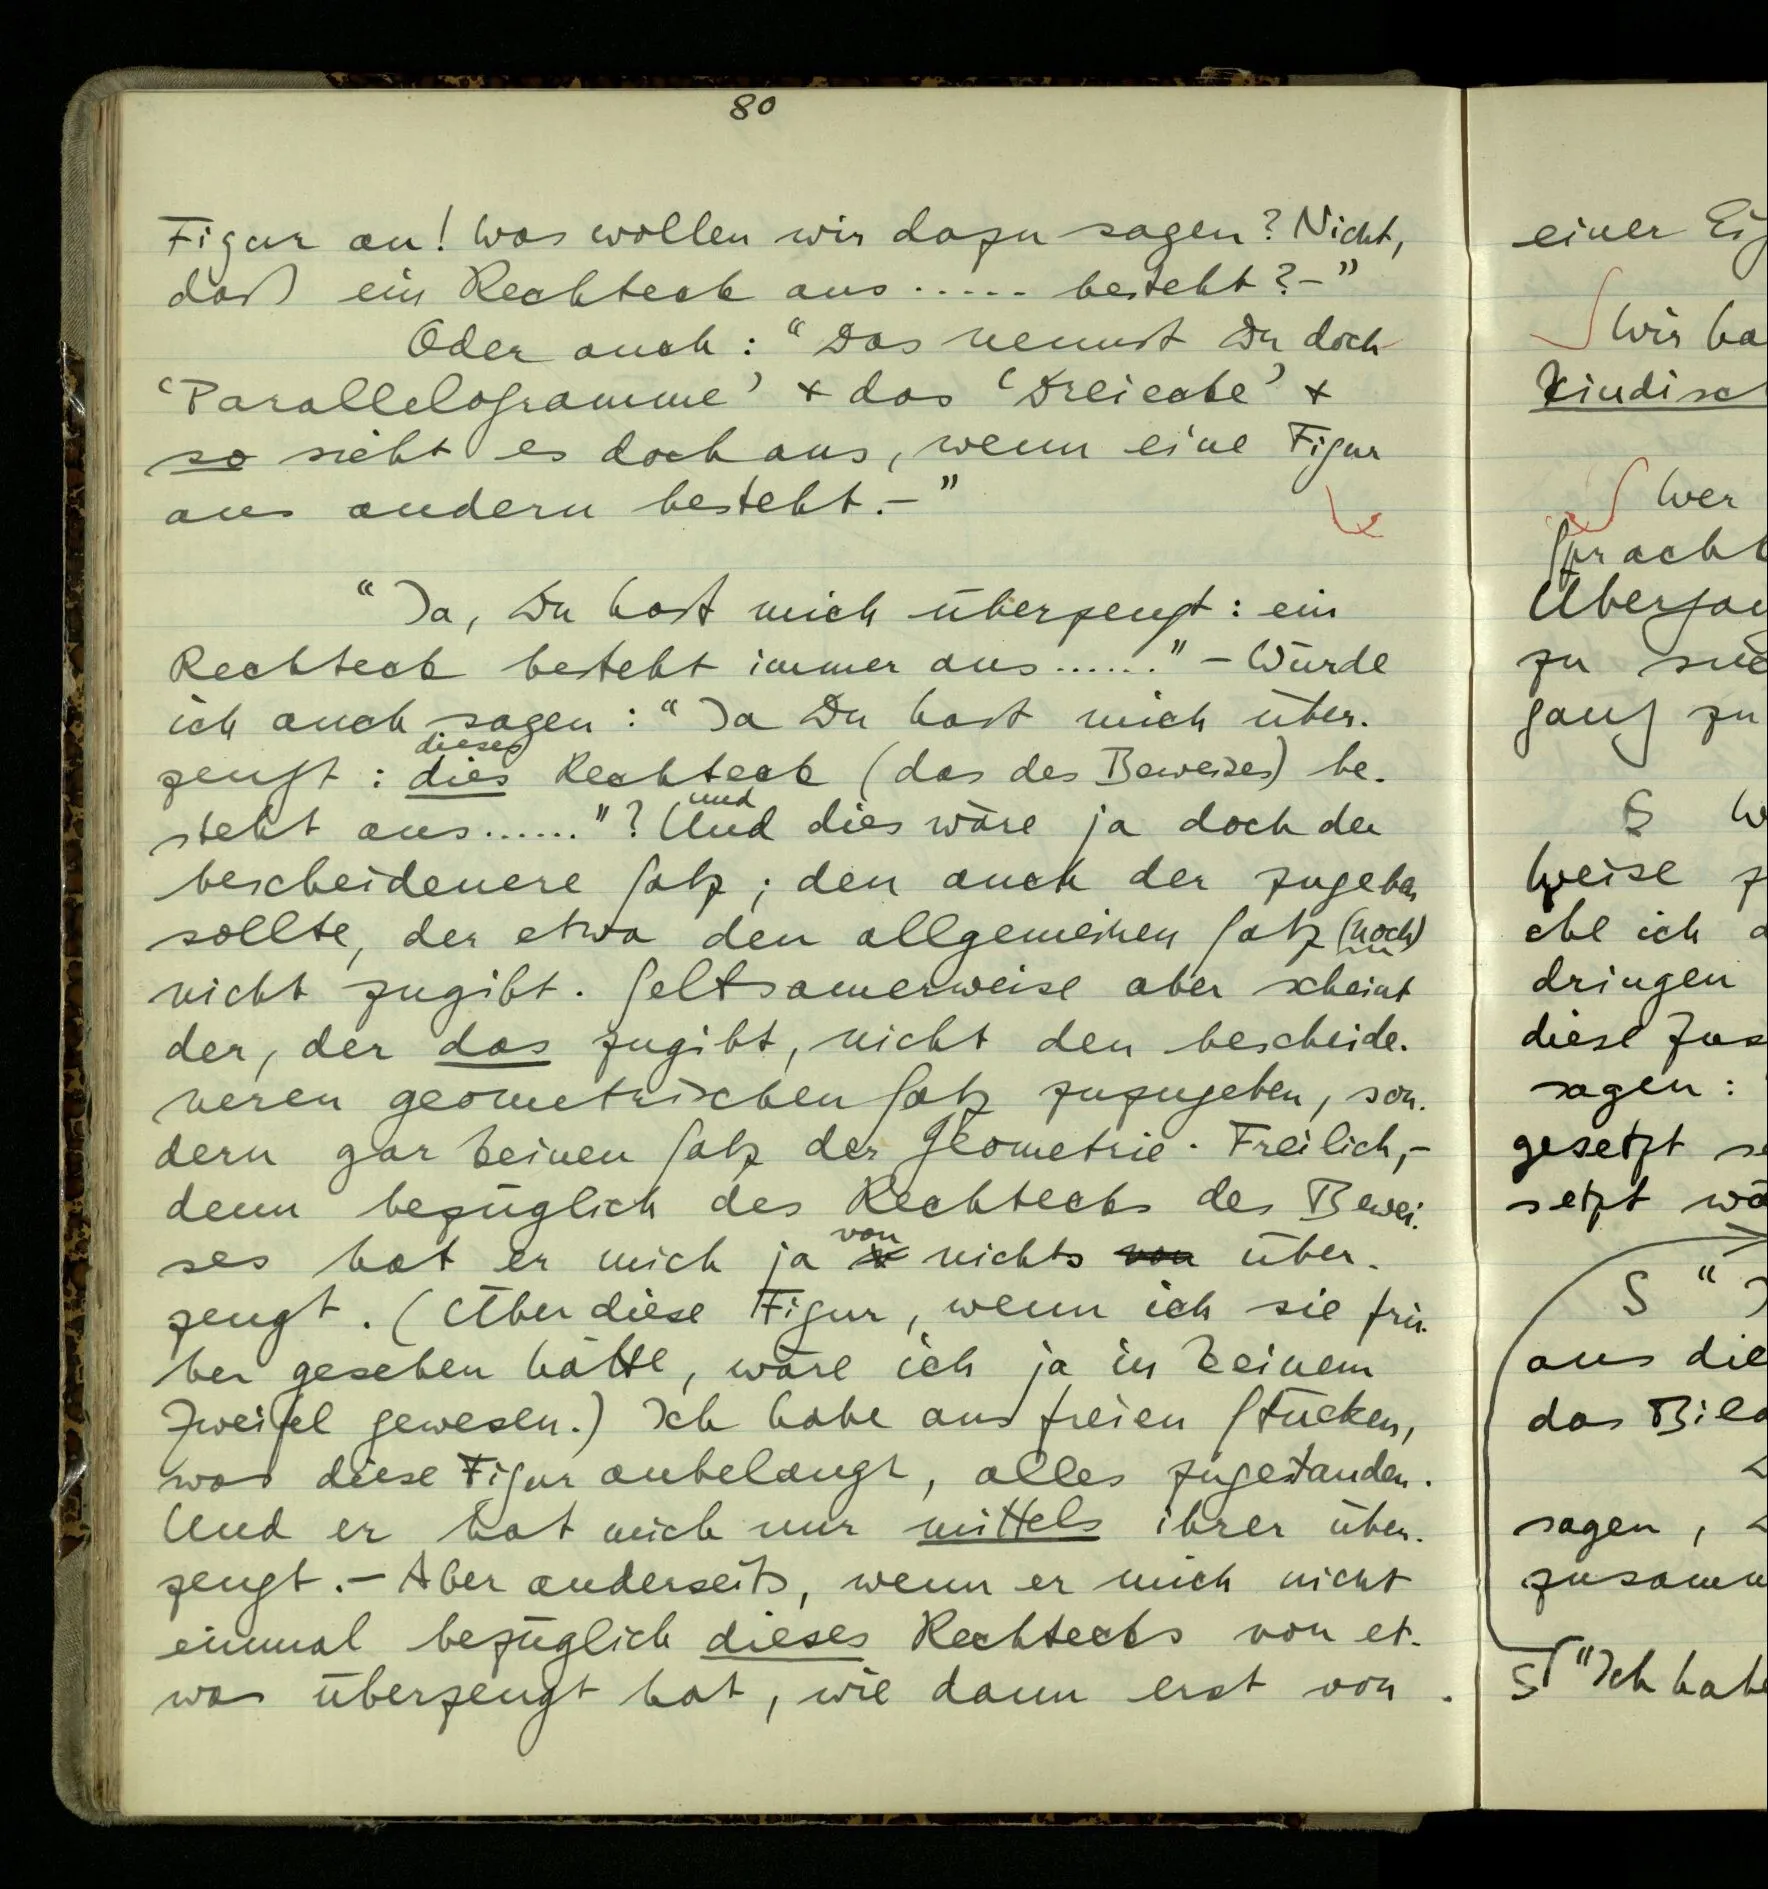 80
Figur an! Was wollen wir dazu sagen? Nicht,
daß ein Rechteck aus ..... besteht?–”
Oder auch: “Das nennst Du doch
‘Parallelogramme’ + das ‘Dreiecke’ +
so sieht es doch aus, wenn eine Figur
aus andern besteht.–”
“Ja, Du hast mich überzeugt: ein
Rechteck besteht immer aus ......” – Würde
ich auch sagen: “Ja Du hast mich über-
dieses
zeugt: dies Rechteck (das des Beweises) be-
und
steht aus ......”? Und dies wäre ja doch der
bescheidenere Satz; den auch der zugeben
sollte, der etwa den allgemeinen Satz (noch)
nicht zugibt. Seltsamerweise aber scheint
der, der das zugibt, nicht den bescheide-
neren geometrischen Satz zuzugeben, son-
dern gar keinen Satz der Geometrie. Freilich,–
denn bezüglich des Rechtecks des Bewei-
von
ses hat er mich ja nichts von über-
zeugt. (Über diese Figur, wenn ich sie frü-
her gesehen hätte, wäre ich ja in keinem
Zweifel gewesen.) Ich habe aus freien Stücken,
was diese Figur anbelangt, alles zugestanden.
Und er hat mich nur mittels ihrer über-
zeugt.– Aber anderseits, wenn er mich nicht
einmal bezüglich dieses Rechtecks von et-
was überzeugt hat, wie dann erst von
einer Eig
Wir ha
Kindisch
Wer
Sprach
Übergan
zu
gang zu
S W
Weise z
che ich
dringen
diese Zus
sagen:
gesetzt se
setzt wä
S “
aus die
das Bild
sagen,
zusamm
S “Ich habe